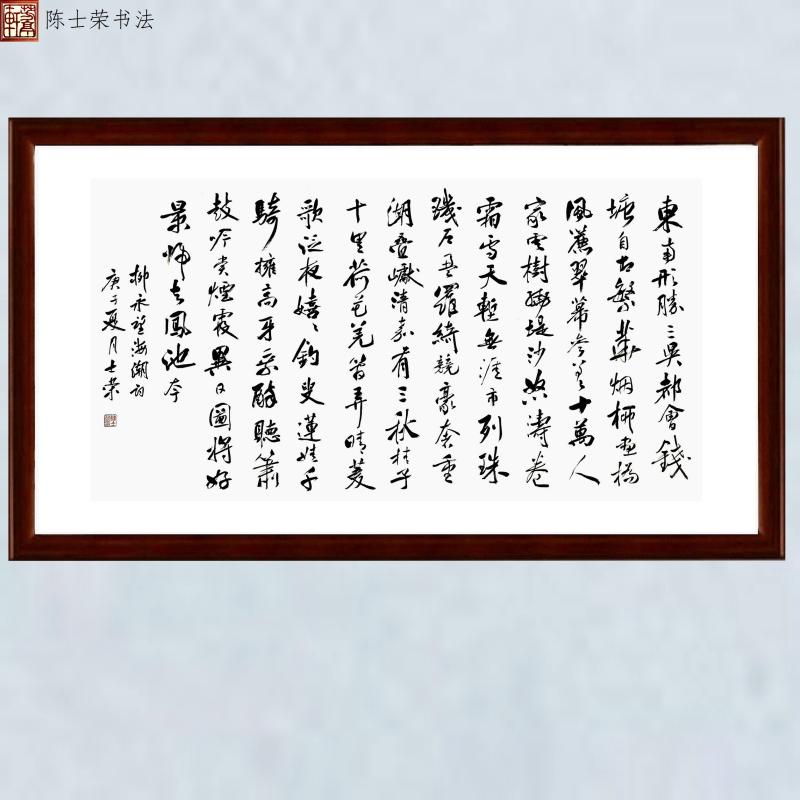 陈士荣书法
東南形勝三吳都會錢
塘自古繁華烟柳画橋
風簾翠幕参差十萬人
家雲樹繞堤沙怒濤卷
霜雪天塹無涯市列珠
璣户盈羅綺競豪奢重
湖疊巘清嘉有三秋桂子
十里荷花羌管弄晴菱
歌泛夜嬉〻釣叟蓮娃千
騎擁高牙乘醉聽簫
鼓吟赏煙霞異日圖將好
景歸去鳳池夸
柳永望海潮词
庚子夏月士荣